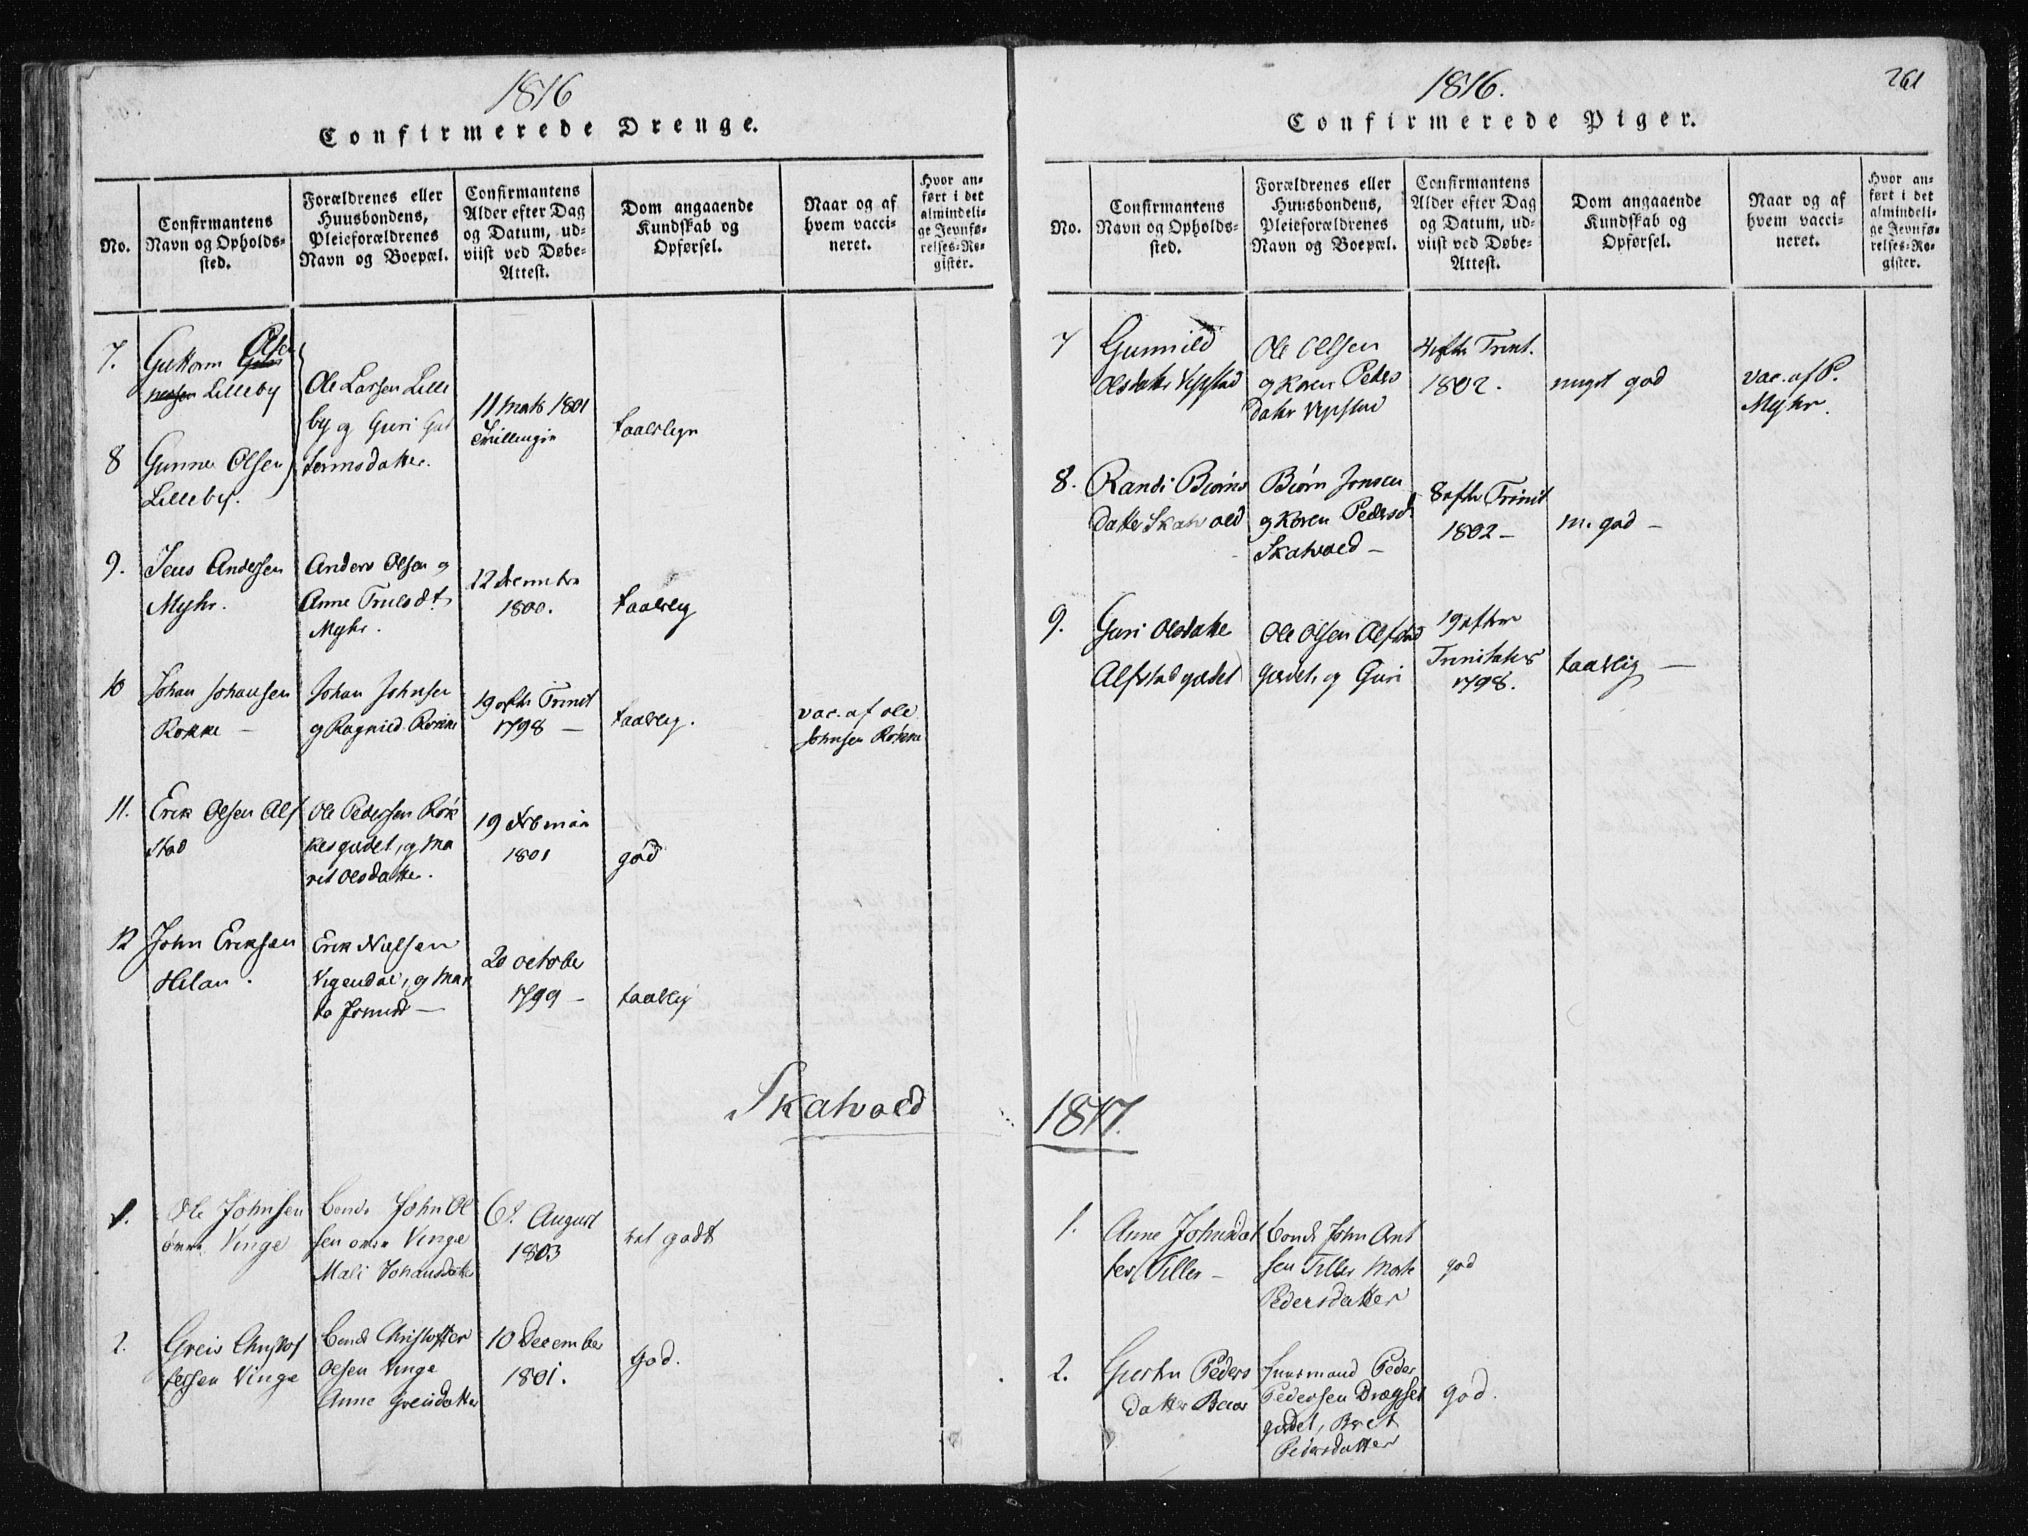 1816
Confirmerede Drenge.
No.
Confirmantens
Navn og Opholds-
sted.
Forældrenes eller
Huusbondens,
Pleieforældrenes
Navn og Boepæl.
Confirmantens
Alder efter Dag
og Datum, ud-
viist ved Døbe-
Attest.
Dom angaaende
Kundskab og
Opførsel.
Naar og af
hvem vacci-
neret.
Hvor an-
ført i det
almindeli-
ge Jevnfø-
relses-Re-
gister.
7.
Guttorm Olsen
Lilleby
Ole Larsen Lille
by og Guri Gut
tormsdatter.
11 Marts 1801
Tvillinger
taalelige
8
Gunner Olsen
Lilleby.
9.
Jens Andersen
Myhr.
Anders Olsen og
Anne Trulsdt.
Myhr.
12
1800.
taalelig
10
Johan Johansen
Rokke —
Johan Johnsen
og Ragnild Rokke
19 efter Trinit
1798 —
taalelig.
vac. af ole
Johnsen Rokke
11.
Erik Olsen Alf
stad
Ole Pedersen Røk
kesgiedet, og Ma
rit Olsdatter.
19
1801
god
12
John Eriksen
Hilan.
Erik Nielsen
Vigendal, og Mar
20 october
1799 —
taalelig
Skatvold
1.
Ole Johnsen
Vinge
bond. John Ol
sen Vinge
Mali Johansdatter
6t. August
1803
vel godt
2.
Greis Christof
fersen Vinge
bond. Christoffer
Olsen Vinge
Anne Greisdatter
10 December
1801.
god.
1816.
261
Confirmerede Piger.
No.
Confirmantens
Navn og Opholds-
sted.
Forældrenes eller
Huusbondens,
Pleieforældrenes
Navn og Boepæl.
Confirmantens
Alder efter Dag
og Datum, ud-
viist ved Døbe-
Attest.
Dom angaaende
Kundskab og
Opførsel.
Naar og af
hvem vacci-
neret.
Hvor an-
ført i det
almindeli-
ge Jevnfø-
relses-Re-
gister.
7
Gunnild
Olsdatter Vepstad
Ole Olsen
og Karen Peders
datter Vepstad
4 efter Trinit.
1802.
meget god
vac. af P.
Myhr.
8.
Randi Biørns
datter Skatvold
Biørn Jonsen
og Karen Pedersd.
Skatvold —
8 efter Trinit
1802 —
m. god —
9.
Guri Olsdatter
Alfstadgiedet
Ole Olsen Alfstad
giedet, og Guri
19 efter
Trinitatis
1798.
taalelig —
1817.
1.
Anne Johnsdat
ter Tiller —
bond. John Ant
sen Tiller
Pedersdatter
god
2.
Peders
datter
Huusmand Peder
Pedersen Drægset
giedet, Beret
Pedersdatter
god.